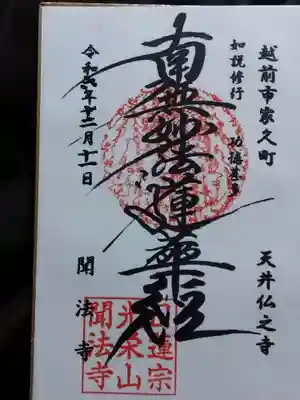 越前市家久町
如説修行 功徳甚多
天井仏之寺
南無妙法蓮華経
令和六年十二月十一日
聞法寺
日蓮宗
光栄山
聞法寺